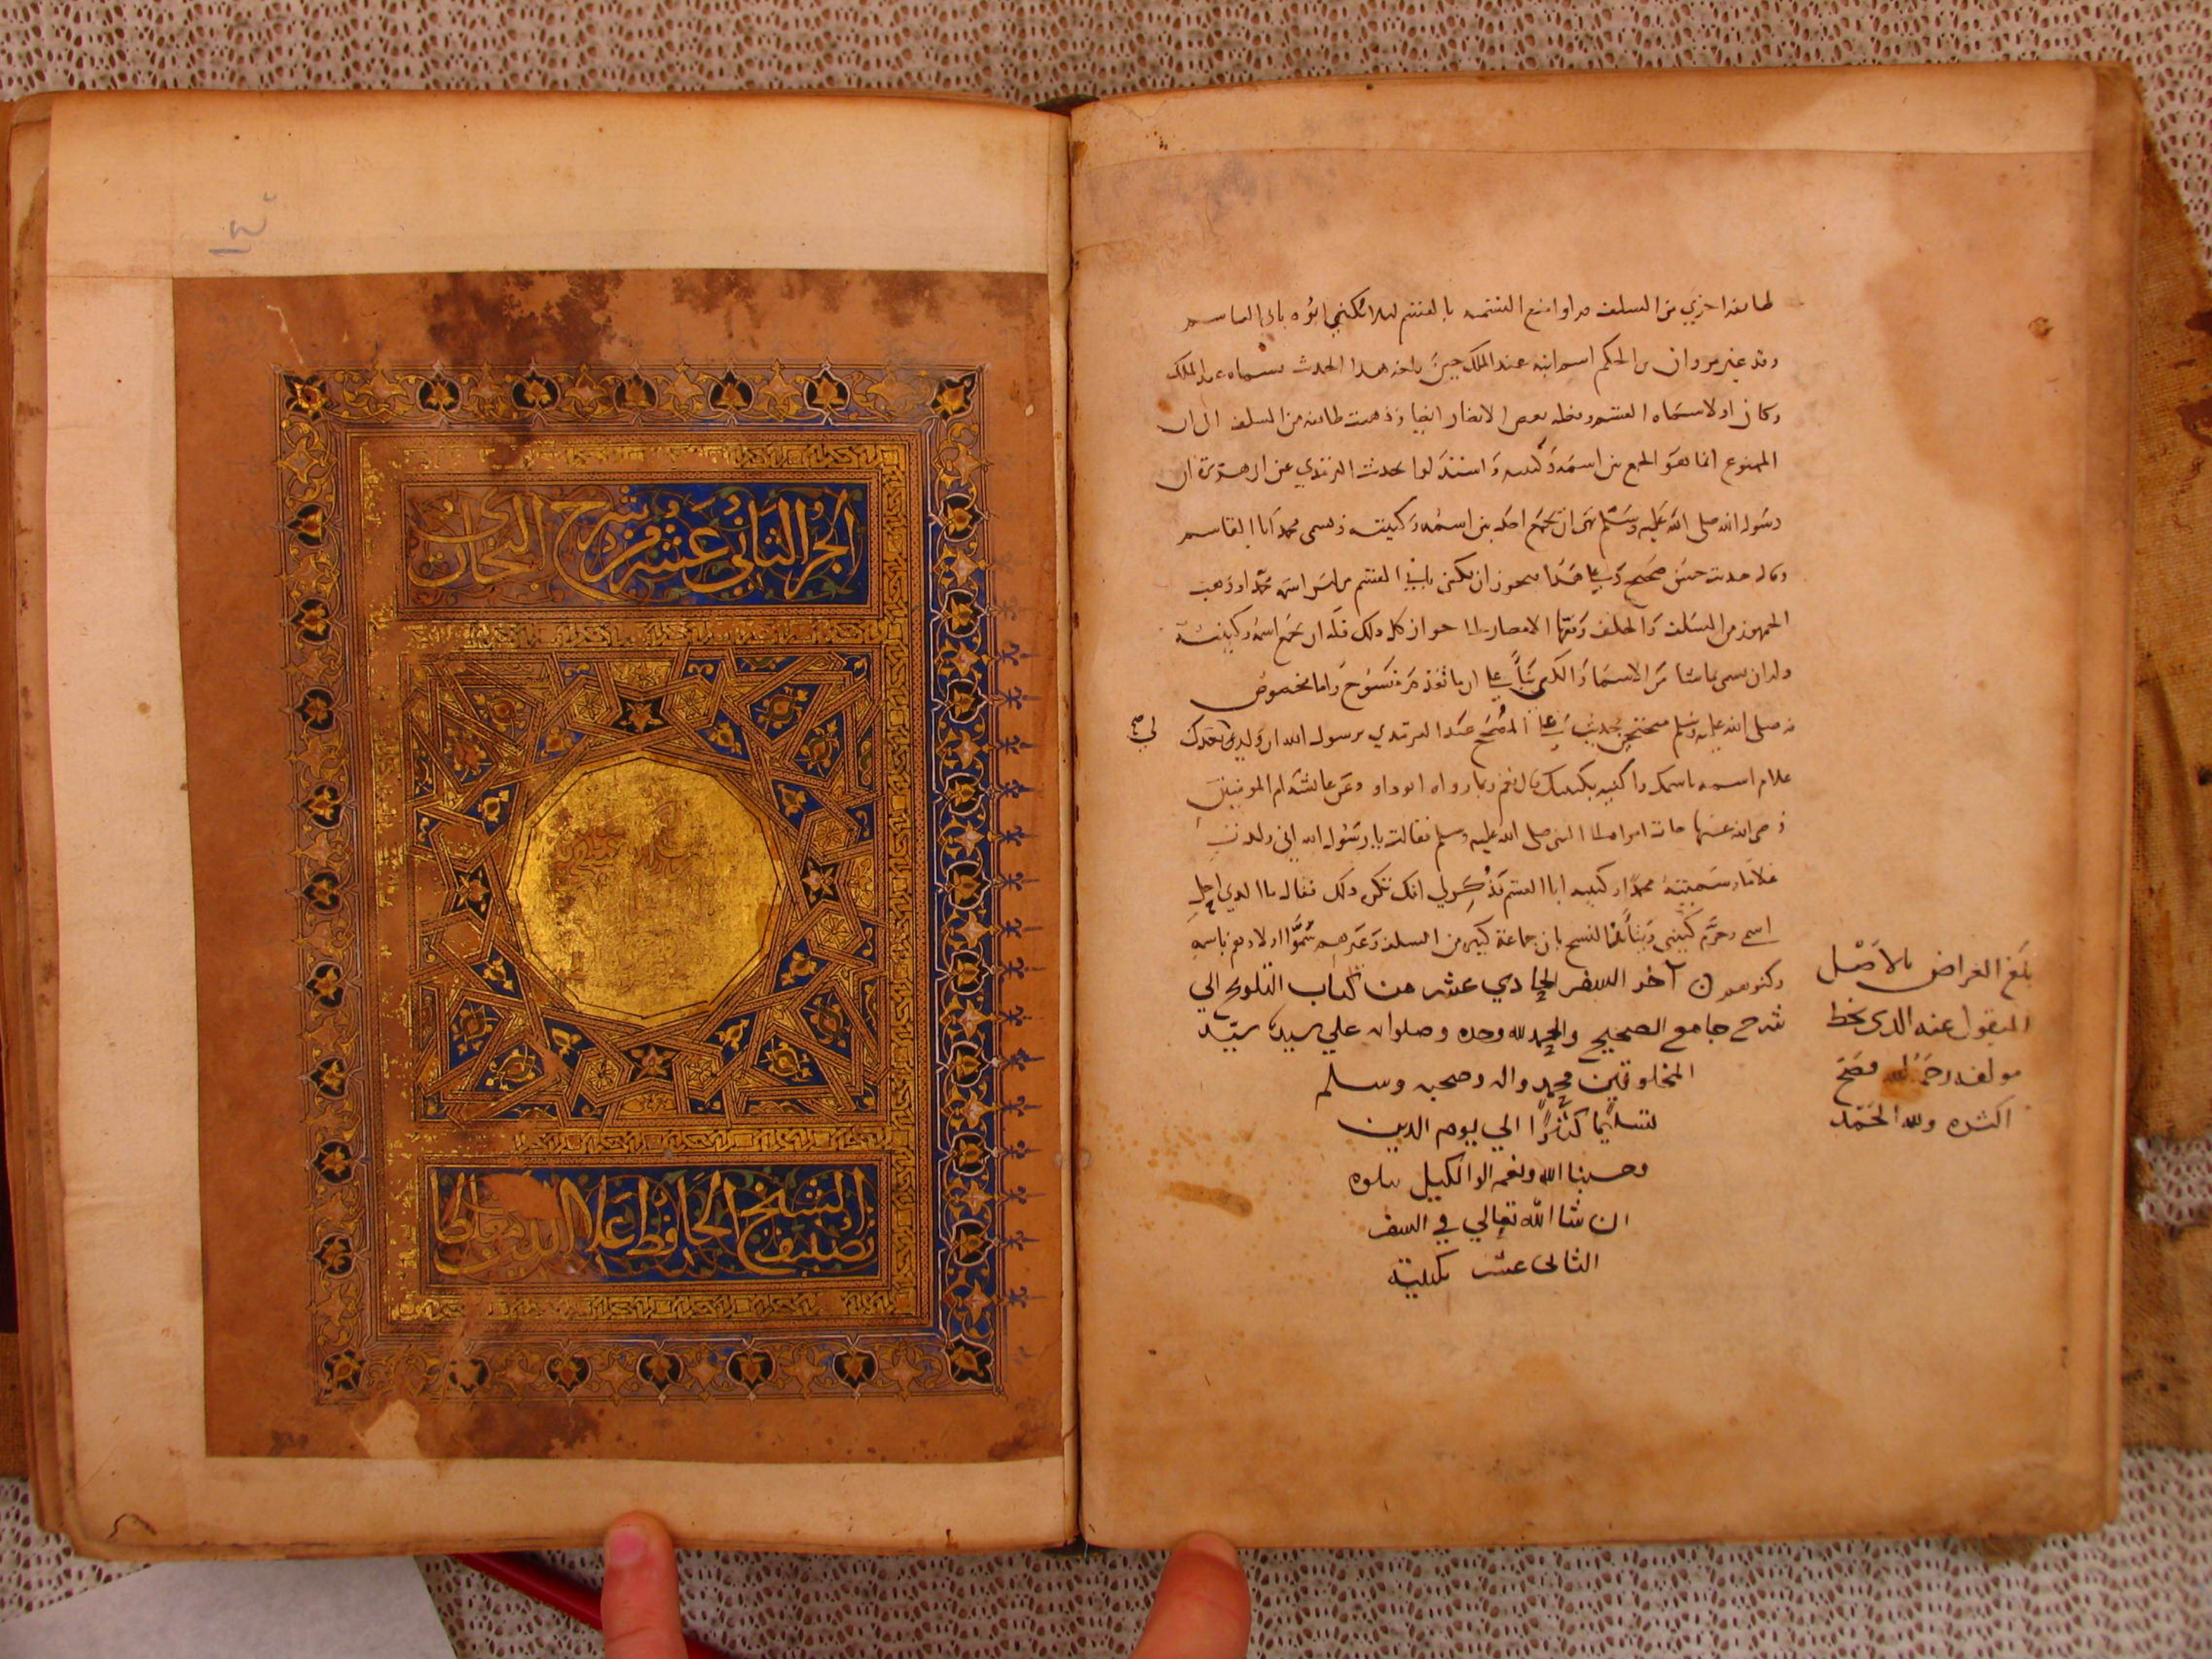 طائفة اخري من السلف فراوا منع التسمية بالقسم لئلا يكني ابوه بابي القاسم
وقد غير مروان بن الحكم اسم ابنه عبد الملك حين بلغه هذا الحديث فسماه عبد الملك
وكان اولا سماه القسم وفعله بعض الانصار ايضا وذهبت طائفة من السلف الى ان
الممنوع انما هو الجمع بين اسمه وكنيته واستدلوا بحديث الترمذي عن ابي هريرة ان
رسول الله صلى الله عليه وسلم نهى ان يجمع احد بين اسمه وكنيته ويسمى محمدا ابا القاسم
وقال حديث حسن صحيح وعلى هذا يجوز ان يكنى بابي القسم من ليس اسمه محمد وذهب
الجمهور من السلف والخلف وفقها الامصار الى جواز كل ذلك فله ان يجمع اسمه وكنيته
وله ان يسمى بما شا من الاسما والكنى بناء على ان ما تقدم منسوخ واما مخصوص
به صلى الله عليه وسلم محتجين بحديث علي المصحح عند الترمذي يرسول الله ان ولد لي بعدك
لي صح
غلام اسميه باسمك واكنيه بكنيتك قال نعم وبما رواه ابو داود وعن عائشة ام المومنين
رضي الله عنها جات امراة الى النبي صلى الله عليه وسلم فقالت يا رسول الله اني ولدت
غلاما وسميته محمدا وكنيته ابا القسم فذكر لي انك تكره ذلك فقال ما الذي احل
اسمي وحرم كنيتي وبناء على النسخ بان جماعة كبيرة من السلف وغيرهم سموا اولادهم باسمه
وكنوهم آخر السفر الحادي عشر من كتاب التلويح الي
شرح جامع الصحيح والحمد لله وحده وصلواته علي سيدنا سيد
المخلوقين محمد واله وصحبه وسلم
تسليما كثيرا الي يوم الدين
وحسبنا الله ونعم الوالكيل يتلوه
ان شا الله تعالي في السفر
الثانى عشر بكنيته
بلغ العراض بالاصل
المنقول عنه الذى بخط
مولفه رحمه الله فصح
اكثره ولله الحمد
الجزء الثاني عشر من شرح البخاري
تصنيف الشيخ الحافظ علا الدين مغلطاي